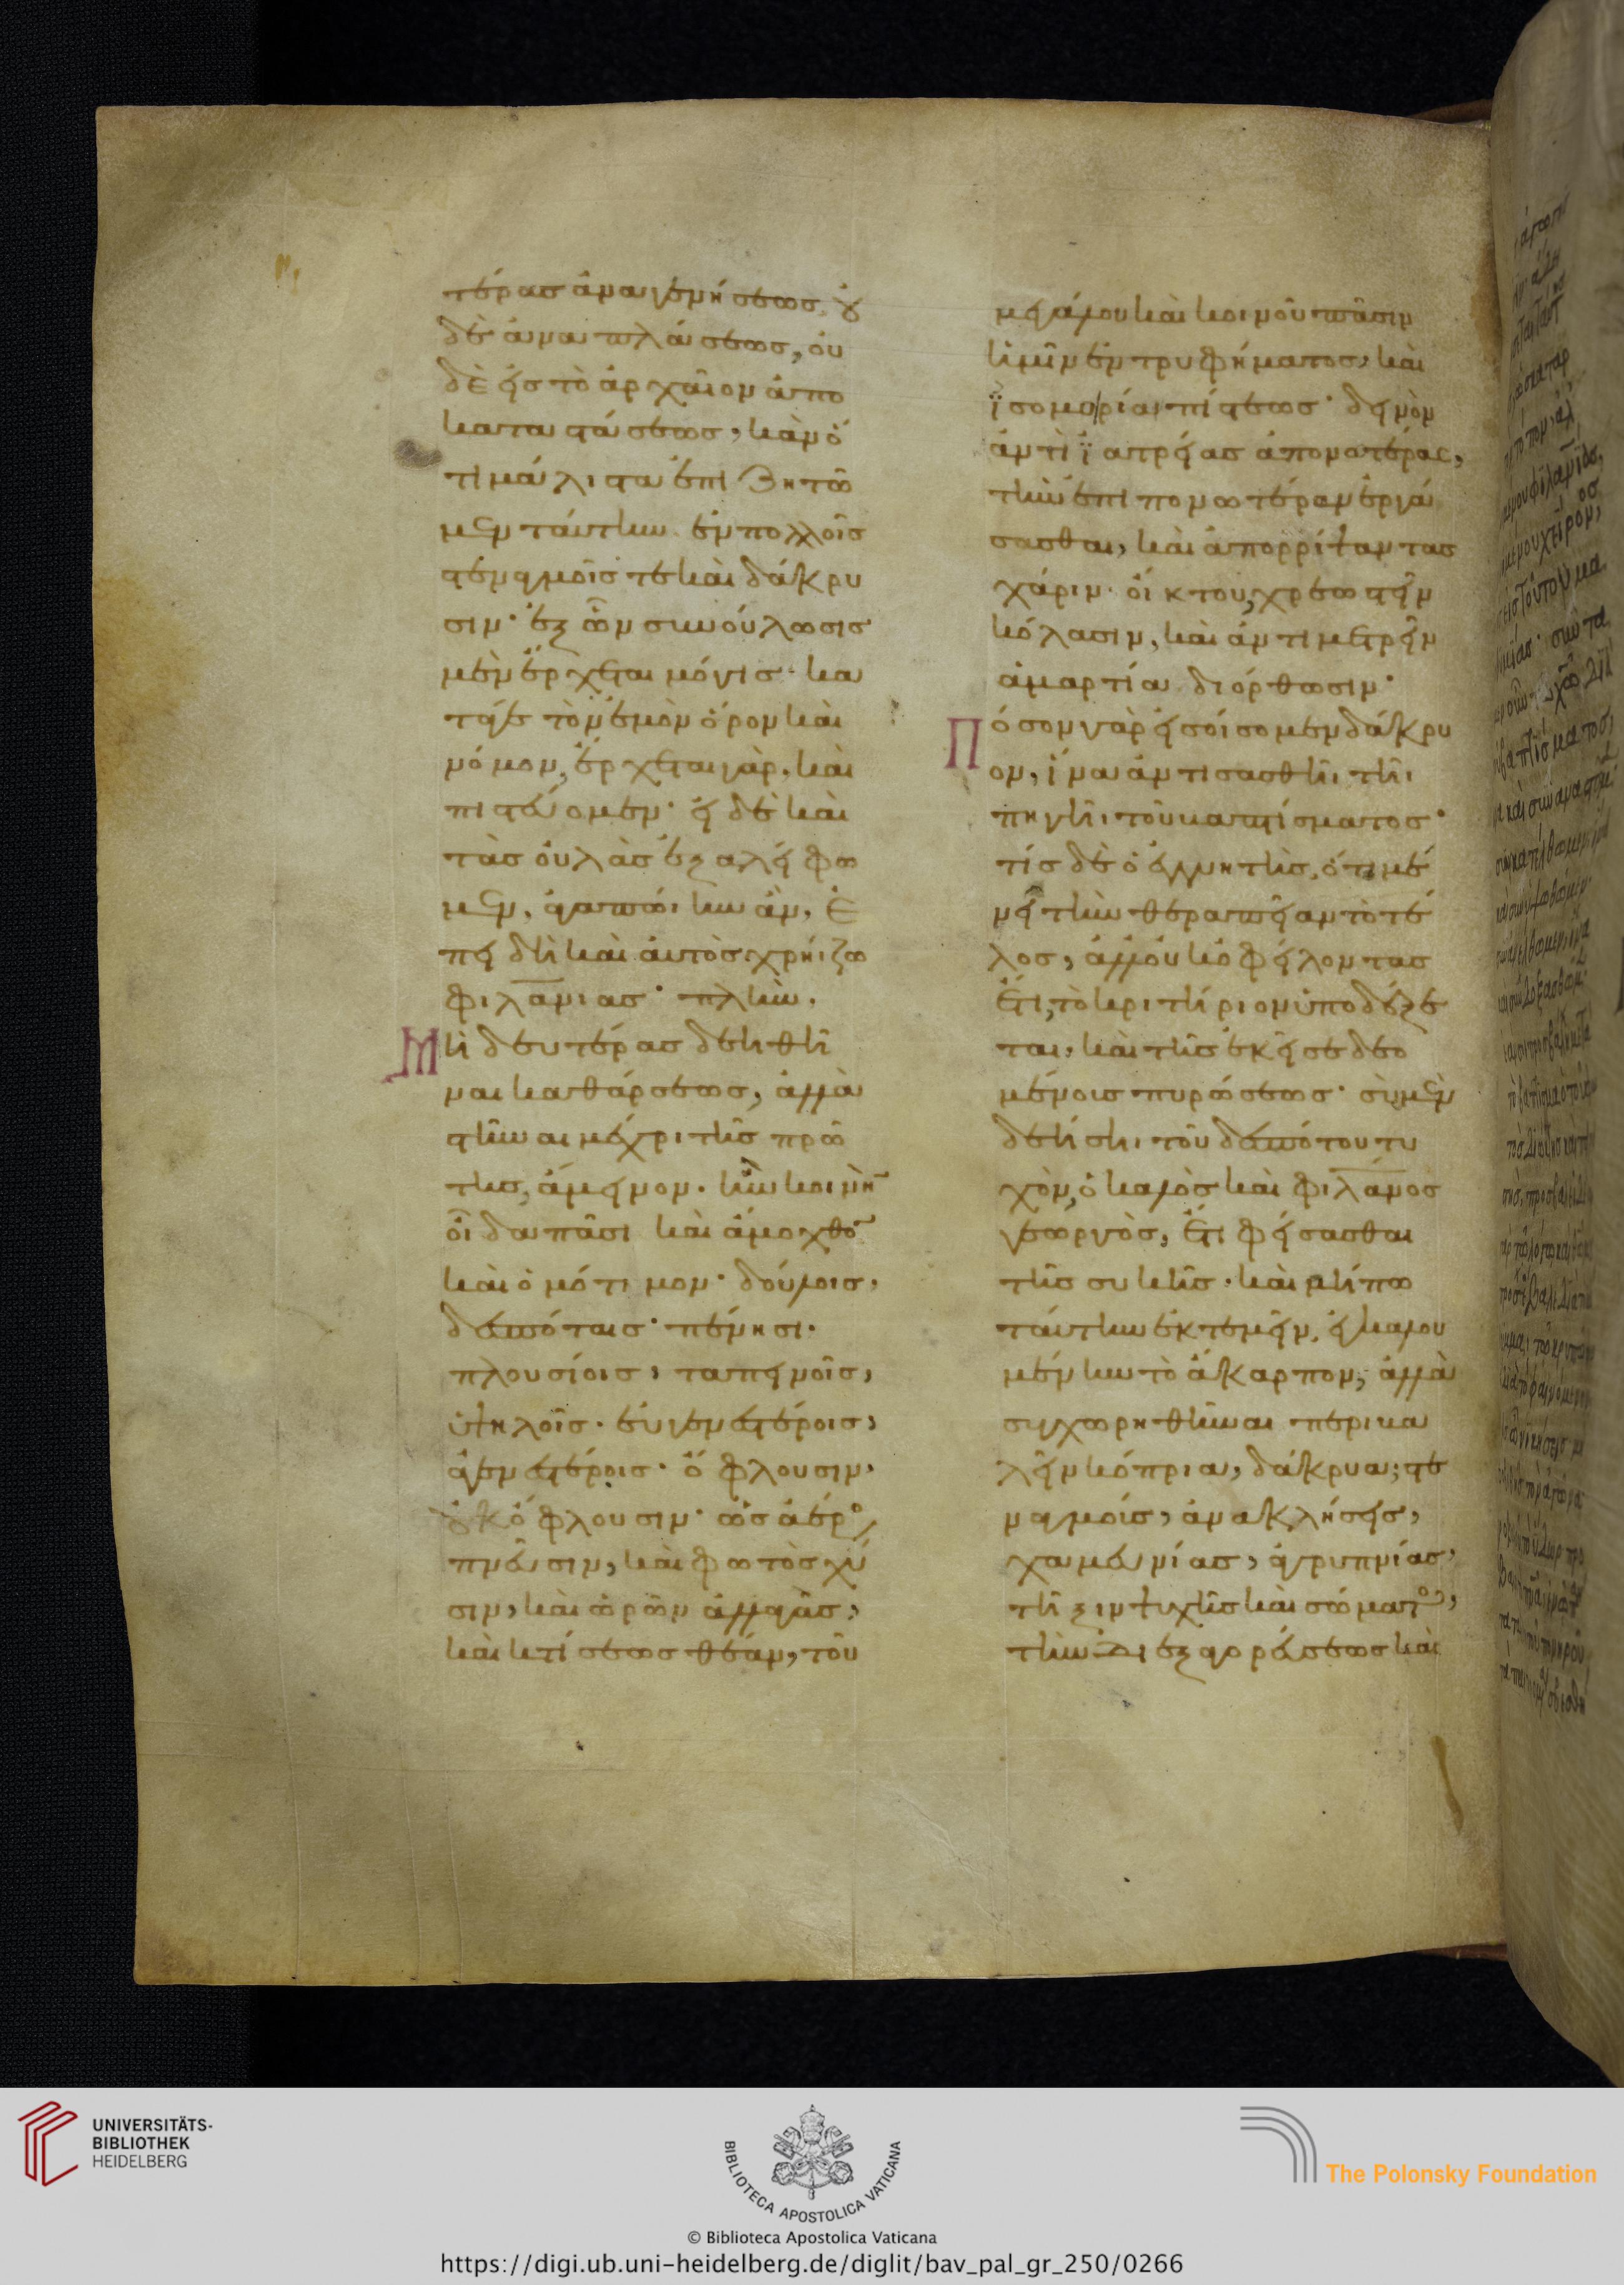 τέρας ἀναγεννήσεως, οὐ
δὲ ἀναπλάσεως, οὐ
δὲ εἰς τὸ ἀρχαῖον ἀπο
καταστάσεως, κἂν ὅ
τι μάλιστα ἐπιζητῶ
μεν ταύτην ἐν πολλοῖς
στεναγμοῖς τε καὶ δάκρυ
σιν· ἐξ ὧν συνούλωσις
μὲν ἔρχεται μόγις· κα
τά γε τὸν ἐμὸν ὅρον καὶ
νόμον, ἔρχεται γὰρ, καὶ
πιστεύομεν· εἰ δὲ καὶ
τὰς οὐλὰς ἐξαλείφω
μεν, ἀγαπώιην ἂν, ἐ
πεὶ δὴ καὶ αὐτὸς χρήιζω
φιλανίας· πλὴν,
Μὴ δευτέρας δεηθῆ
ναι καθάρσεως, ἀλλὰ
στῆναι μέχρι τῆς πρώ
της, ἄμεινον. ἣν κοινὴν
οἶδα πᾶσι καὶ ἄμοχθον
καὶ ὁμότιμον· δούλοις,
δεσπόταις· πένησι·
πλουσίοις, ταπεινοῖς,
ὑψηλοῖς. εὐγενεστέροις,
ἀγενεστέροις· ὄφλουσιν,
οὐκ ὄφλουσιν· ὡς ἀέρος
πνεῦσιν, καὶ φωτὸς χύ
σιν, καὶ ὡρῶν ἀλλαγὰς,
καὶ κτίσεως θέαν, τοῦ
μεγάλου καὶ κοινοῦ πᾶσιν
ἡμῖν ἐντρυφήματος, καὶ
ἰσομοιρίαν πίστεως· δεινὸν
ἀντὶ ἰατρείας ἀπονωτέρας,
τὴν ἐπιπονωτέραν ἐργά
σασθαι, καὶ ἀπορρίψαντας
χάριν οἴκτου, χρεωστεῖν
κόλασιν, καὶ ἀντιμετρεῖν
ἁμαρτία διόρθωσιν·
Πόσον γὰρ εἰσοίσομεν δάκρυ
ον, ἵνα ἀντισασθῆι τῆι
πηγῆι τοῦ βαπτίσματος·
τίς δὲ ὁ ἐγγυητὴς, ὅτι με
νεῖ τὴν θεραπείαν τὸ τέ
λος, ἀλλ' οὐκ ὀφείλοντας
ἔτι, τὸ κριτήριον ὑποδέξε
ται, καὶ τῆς ἐκεῖσε δεο
μένοις πυρώσεως· σὺ μὲν
δεήσηι τοῦ δεσπότου τυ
χὸν, ὁ καλὸς καὶ φιλάνος
γεωργὸς, ἔτι φείσασθαι
τῆς συκῆς. καὶ μήπω
ταύτην ἐκτεμεῖν, ἐγκαλου
μένην τὸ ἄκαρπον, ἀλλὰ
συγχωρηθῆναι περιβα
λεῖν κόπρια, δάκρυα, στε
ναγμούς, ἀνακλήσεις,
χαμευνίας, ἀγρυπνίας,
τῆξιν ψυχῆς καὶ σώματος,
τὴν δι ἐξαγορεύσεως καὶ
UNIVERSITÄTS-
BIBLIOTHEK
HEIDELBERG
BIBLIOTECA APOSTOLICA VATICANA
© Biblioteca Apostolica Vaticana
The Polonsky Foundation
https://digi.ub.uni-heidelberg.de/diglit/bav_pal_gr_250/0266